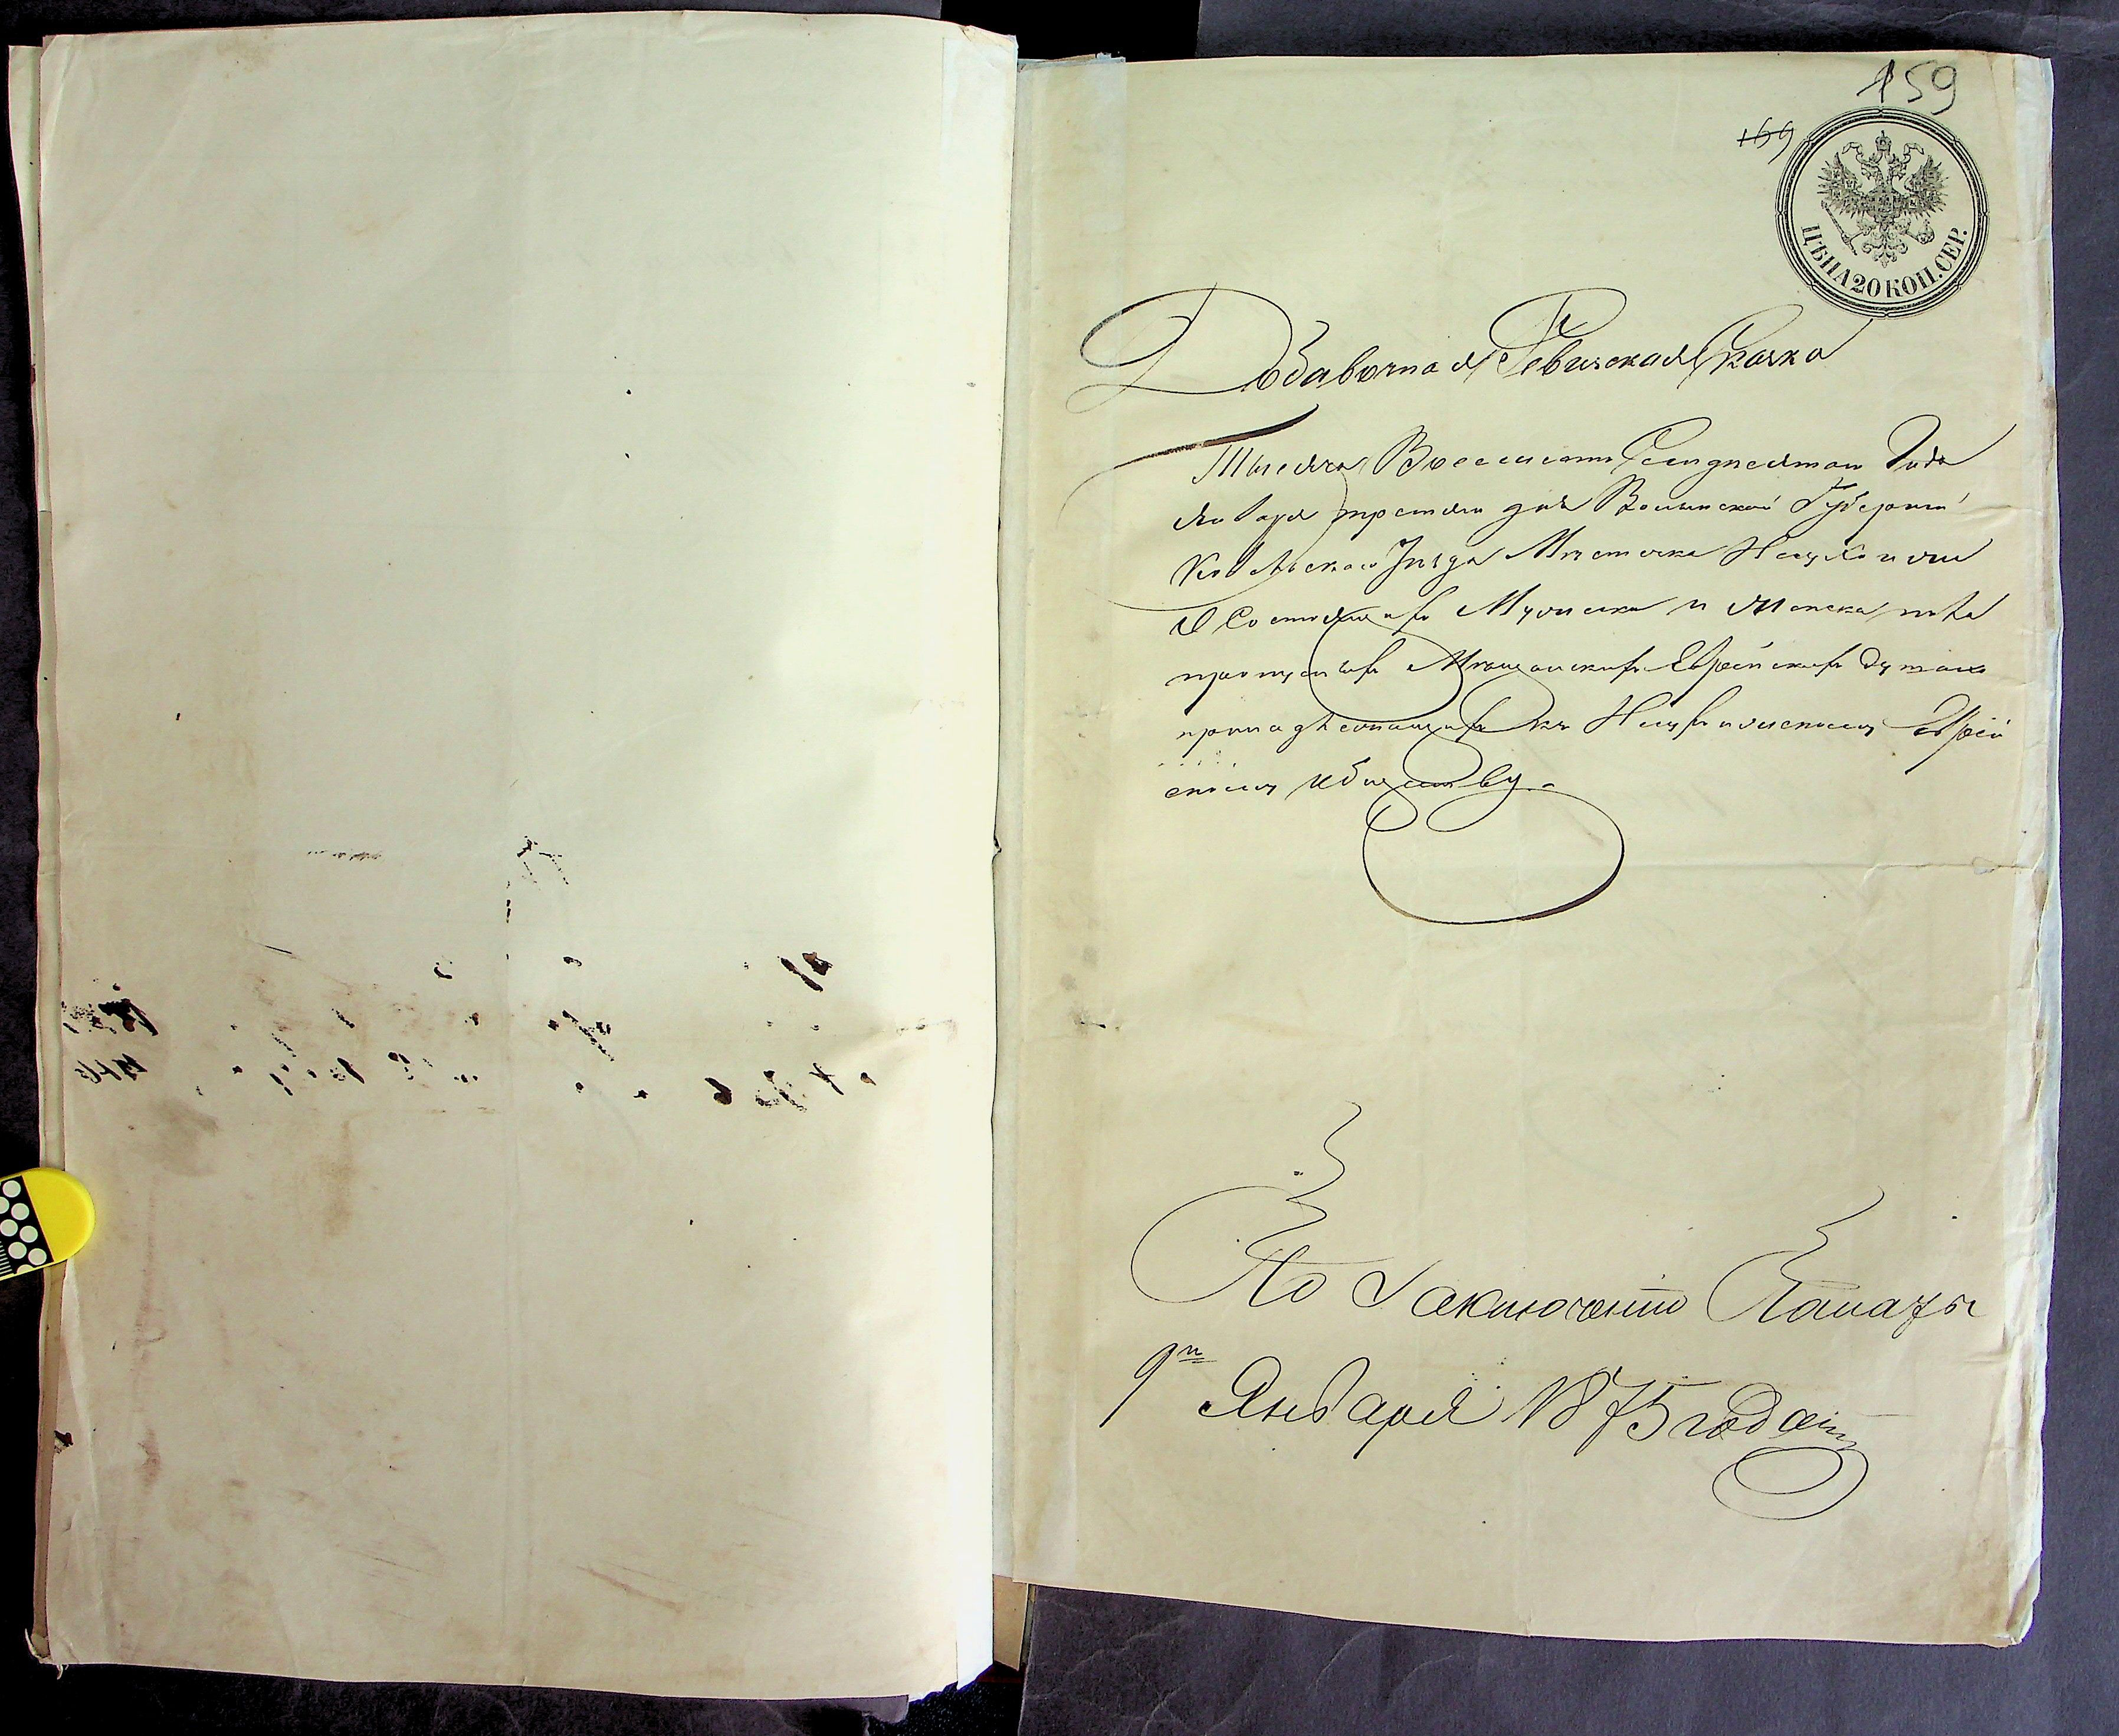 159
159
ЦѢНА 20 КОП. СЕР.
Добавочная Ревизская Сказка
Тысяча Восемсотъ Семдесятаго Года
Января третяго дня Волынской Губерніи
Ковельскаго Уѣзда Мѣстечка Несухоижи
О Состоящихъ Мужеска и Женска пола
пропусныхъ Мѣщанскихъ Еврейскихъ Душахъ
принадлежащихъ къ Несухоижскому Еврей
скому обществу.
По Заключенію Палаты
9го Января 1875 года